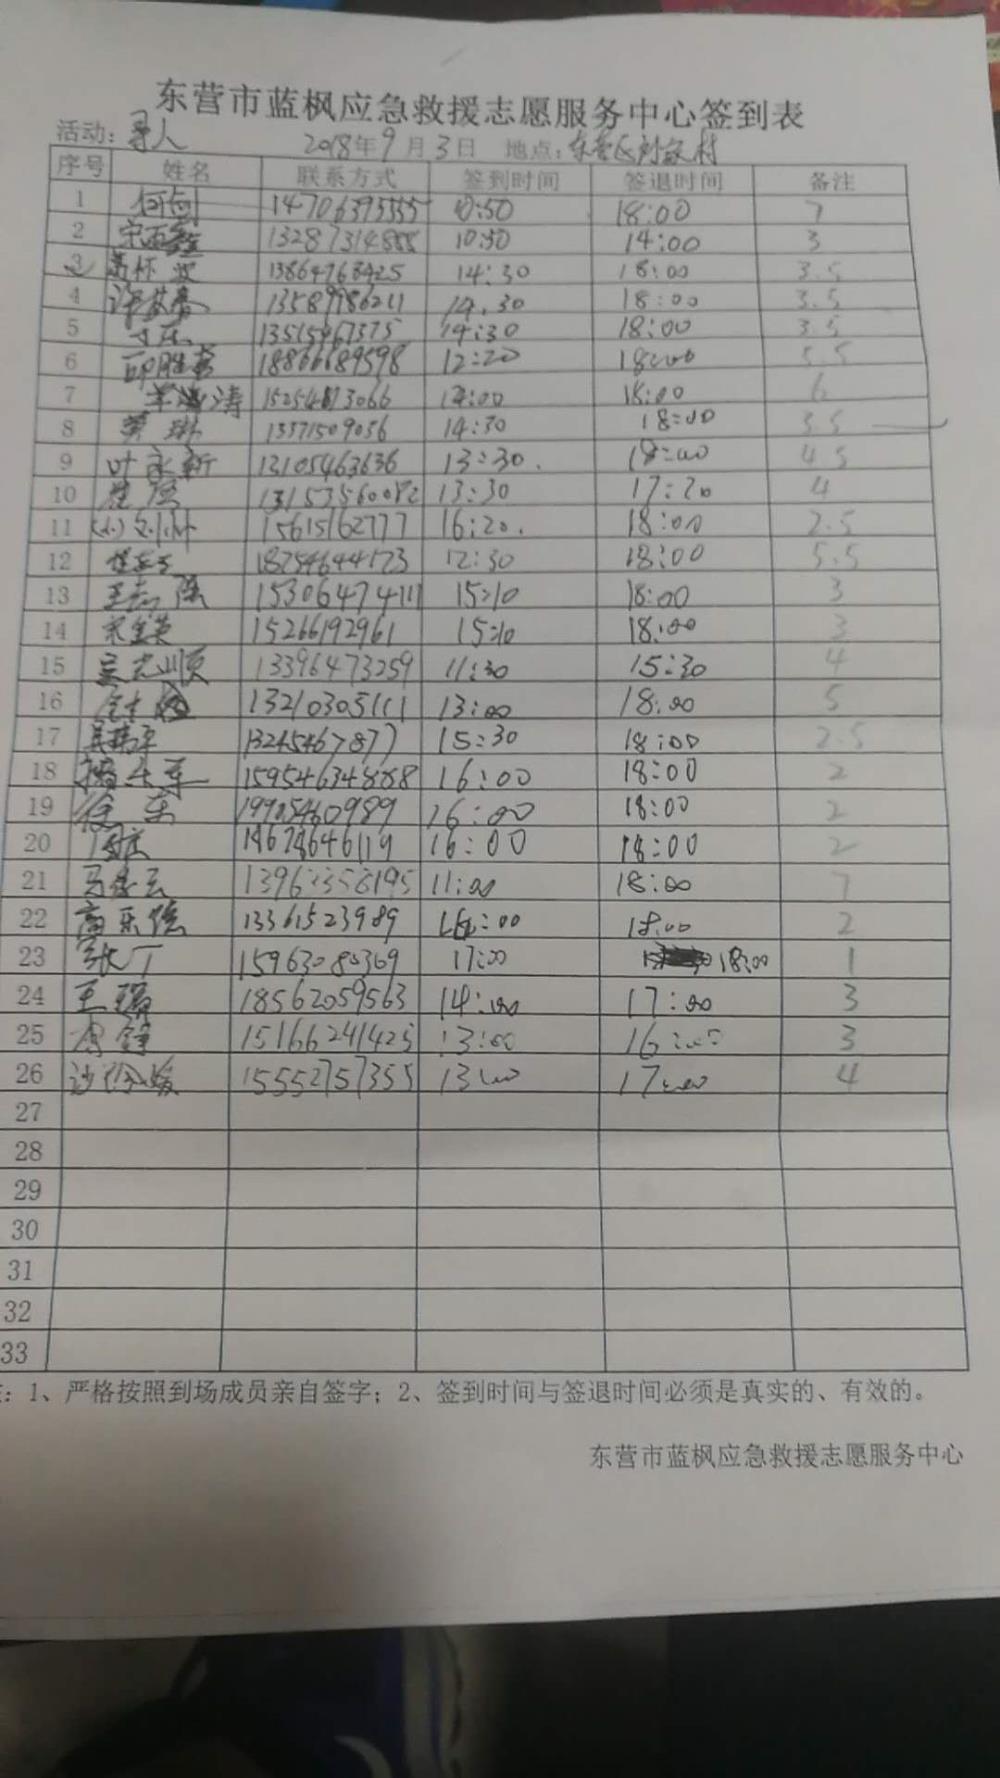 东营市蓝枫应急救援志愿服务中心签到表
活动：寻人 2018年9月3日 地点：东营区刘家村
序号 姓名 联系方式 签到时间 签退时间 备注
1 14706395555 10:50 18:00 7
2 宋雨鑫 13287314888 10:50 14:00 3
3 13864768425 14:30 18:00 3.5
4 13589986211 14:30 18:00 3.5
5 13515467375 14:30 18:00 3.5
6 邱胜 18866689598 12:20 18:00 5.5
7 海涛 18:00 6
8 黄琳 13371509036 14:30 18:00 3.5
9 叶永新 13105463636 13:30 18:00 4.5
10 13:30 17:20 4
11 15615162777 16:20 18:00 2.5
12 18754644173 12:30 18:00 5.5
13 15306474111 15:10 18:00 3
14 宋金英 15266192961 15:10 18:00 3
15 13396473259 11:30 15:30 4
16 13210305111 13:00 18:00 5
17 13245467877 15:30 18:00 2.5
18 16:00 18:00 2
19 徐东 19905460989 16:00 18:00 2
20 16:00 18:00 2
21 11:00 18:00 7
22 高乐 13361523989 16:00 18:00 2
23 张丁 15963080369 17:00 18:00 1
24 王瑞 18562059563 14:00 17:00 3
25 15166241425 13:00 16:00 3
26 沙 15552757355 13:00 17:00 4
27
28
29
30
31
32
33
：1、严格按照到场成员亲自签字；2、签到时间与签退时间必须是真实的、有效的。
东营市蓝枫应急救援志愿服务中心